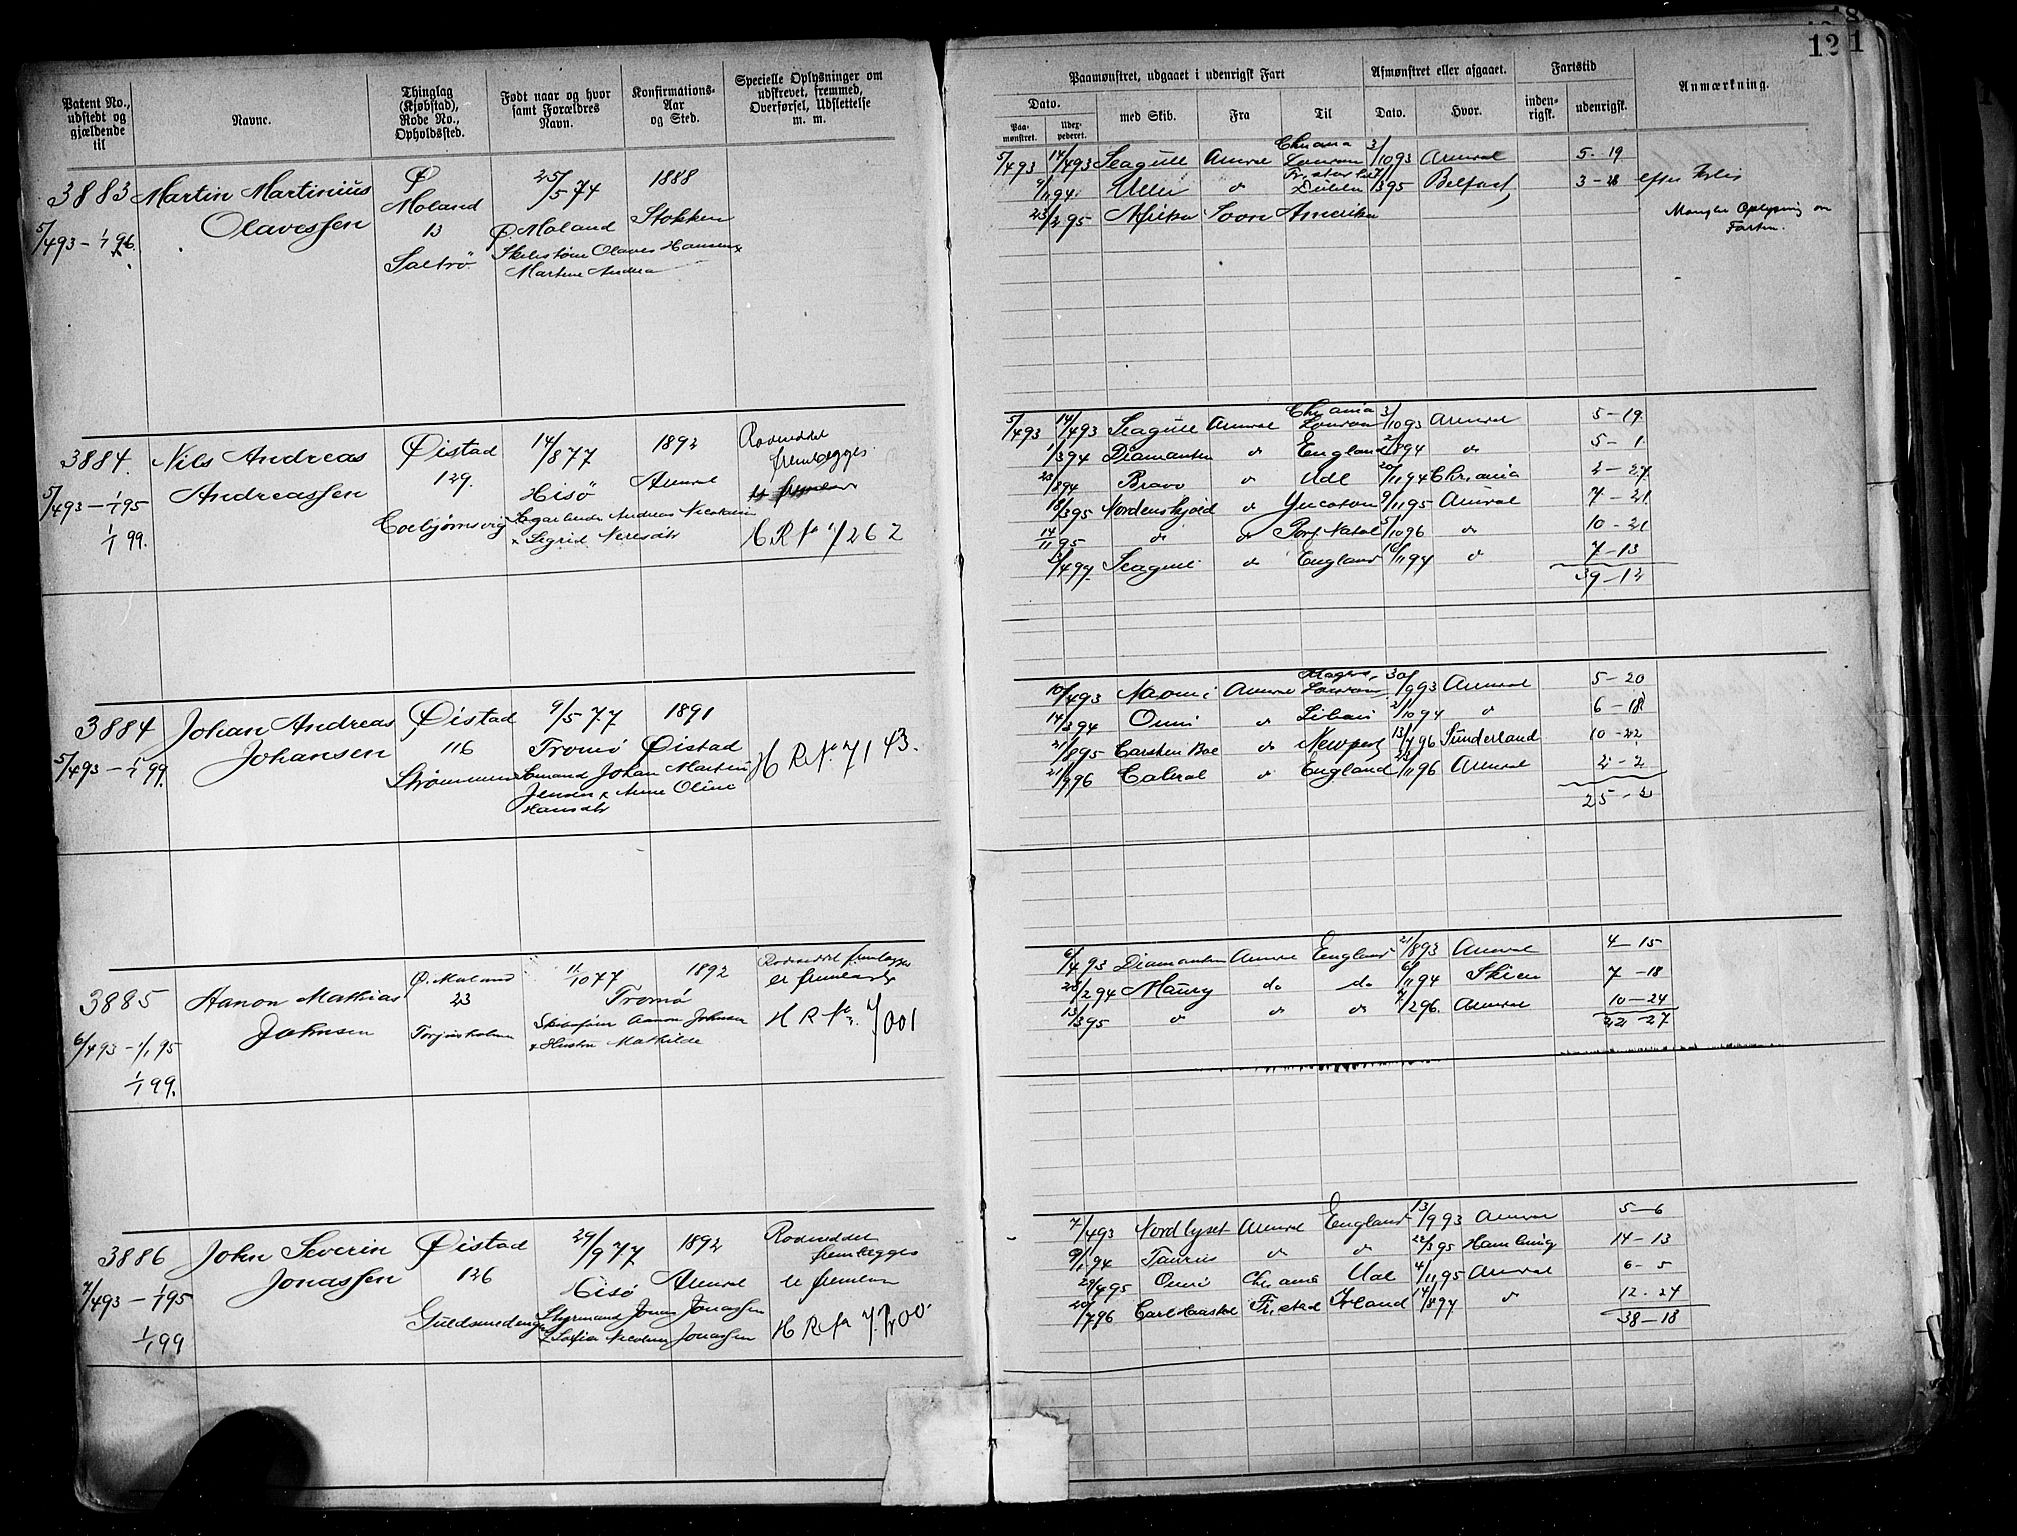 12 1
Patent No., udstedt og gjældende til
Navne.
Thinglag (Kjøbstad), Rode No., Opholdssted.
Født naar og hvor samt Forældres Navn.
Konfirmations-Aar og Sted.
Specielle Oplysninger om udskrevet, fremmed, Overførsel, Udslettelse m. m.
Paamønstret, udgaaet i udenrigsk Fart
Afmønstret eller afgaaet.
Fartstid
Anmærkning.
Dato.
med Skib.
Fra
Til
Dato.
Hvor.
inden-rigsk.
udenrigsk.
Paa-mønstret.
Udex-pederet.
3883 Martin Martinius Ø 25/5 74 1888
Olavessen Moland Ø Moland Stokken
5/4 93 – 1/1 96. 13 Olaves Hansen
Saltrø Martine Andrea
5/4 93 14/4 93 Seagull Arendal Chr ania London 3/10 93 Arendal 5-19
94 do Dublin 95 Belfast 3-28
23/2 95 Afrika Amerika
Mangler Oplysning om
Farten.
3884. Nils Andreas Øistad 14/8 77 1892 Rodeseddel
Andreassen 129. Hisø Arendal fremlægges.
5/4 93 – 1/1 95
1/1 99. Andreas Nicolaisen
Sigrid H R No 7262
5/4 93 14/4 93 Seagull Arendal Chr ania London 3/10 93 Arendal 5-19
1/3 94 Diamanten do England 94 do 5-1
94 Bravo do Udl 20/11 94 Chr ania 2-27
18/3 95 Nordenskjold do Yucatan 9/11 95 Arendal 7-21
14/11 95 do do Port Natal 5/10 96 do 10-21
4 97 Seagull do England 16/11 97 do 7-13
39-12
3884 Johan Andreas Øistad 9/5 77 1891
Johansen 116 Tromø Øistad
5/4 93 – 1/1 99. Johan Martin
Jensen & Anne Oline
Hansdtr
H R No. 7143.
10/4 93 Naomi Arendal London 30/9 93 Arendal 5-20
14/3 94 Omni do Libau 2/10 94 do 6-18
21/8 95 Carsten Boe do Newport 13/7 96 Sunderland 10-22
21/9 96 Cabral do England 23/11 96 Arendal 2-2
25-2
3885 Aanon Mathias Ø. Moland 11/10 77 1892 Rodeseddel fremlægges
Johnsen 23 Tromø er fremlagt
6/4 93 – 1/1 95 Torjusholmen Aanon Johnsen
1/1 99. & Hustru Mathilde
H R No. 7001
6/4 93 Diamanten Arendal England 21/8 93 Arendal 4-15
28/2 94 Maury do do 6/11 94 Skien 7-18
13/3 95 do do do 7/2 96. Arendal 10-24
22-27
3886 John Severin Øistad 29/9 77 1892 Rodeseddel
Jonassen 126 Hisø Arendal fremlægges
7/4 93 – 1/1 95 Guldsmedengen Styrmand Jonas Jonassen er fremlagt
1/1 99 & Sofia Nicoline Jonassen H R No 7200
7/4 93 Nordlyset Arendal England 13/9 93 Arendal 5-6
9/1 94 Taurus do do 22/3 95 Hamburg 14-13
29/4 95 Omni Chr ania Udl 4/11 95 Arendal 6-5
20/7 96 Carl Haasted Fr. stad Irland 14/8 97 do 12-24
38-18